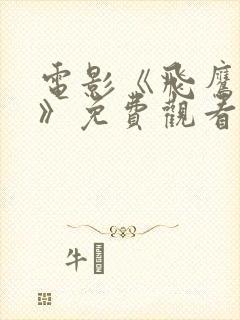 電影《飛鷹
》免費觀看
牛